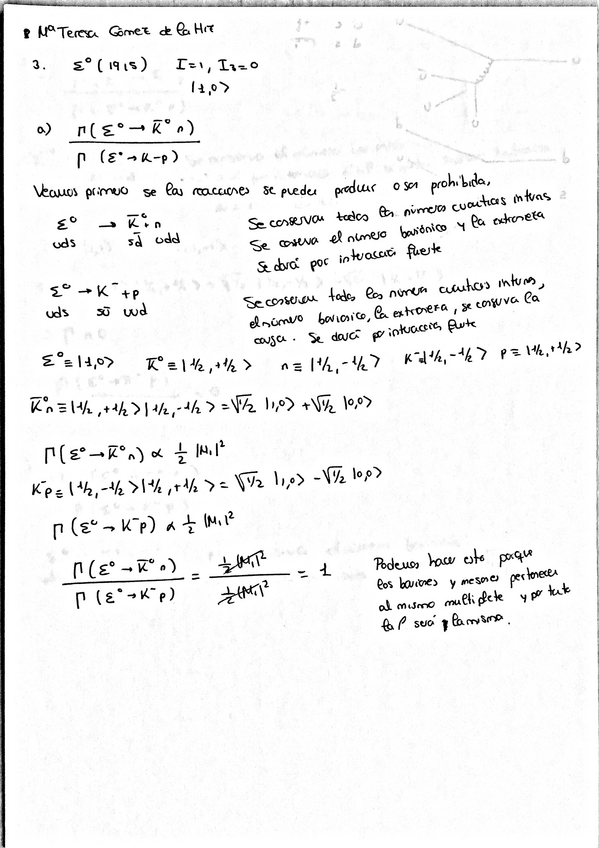 Mª Teresa Gómez de la Hiz
3. Σ⁰ (1915) I=1, I₃=0
|1,0>
a) Γ(Σ⁰ → K̅⁰ n) / Γ(Σ⁰ → K-p)
Veamos primero se las reacciones se pueden producir o son prohibida,
Σ⁰ → K̅⁰ + n Se conservan todos los números cuánticos internos
uds sd̅ udd Se conserva el número bariónico y la extrañeza
Se dará por interacción fuerte
Σ⁰ → K⁻ + p Se conserven todos los números cuánticos internos,
uds su̅ uud el número bariónico, la extrañeza, se conserva la
carga. Se dará por interacción fuerte
Σ⁰ ≡ |1,0> K̅⁰ ≡ |1/2, +1/2> n ≡ |1/2, -1/2> K⁻ ≡ |1/2, -1/2> p ≡ |1/2, +1/2>
K̅⁰n ≡ |1/2, +1/2> |1/2, -1/2> = √1/2 |1,0> + √1/2 |0,0>
Γ(Σ⁰ → K̅⁰ n) ∝ 1/2 |M₁|²
K⁻p ≡ |1/2, -1/2> |1/2, +1/2> = √1/2 |1,0> - √1/2 |0,0>
Γ(Σ⁰ → K⁻p) ∝ 1/2 |M₁|²
Γ(Σ⁰ → K̅⁰ n) / Γ(Σ⁰ → K⁻p) = 1/2 |M₁|² / 1/2 |M₁|² = 1
Podemos hacer esto porque
los bariones y mesones pertenecen
al mismo multiplete y por tanto
la P será la misma.